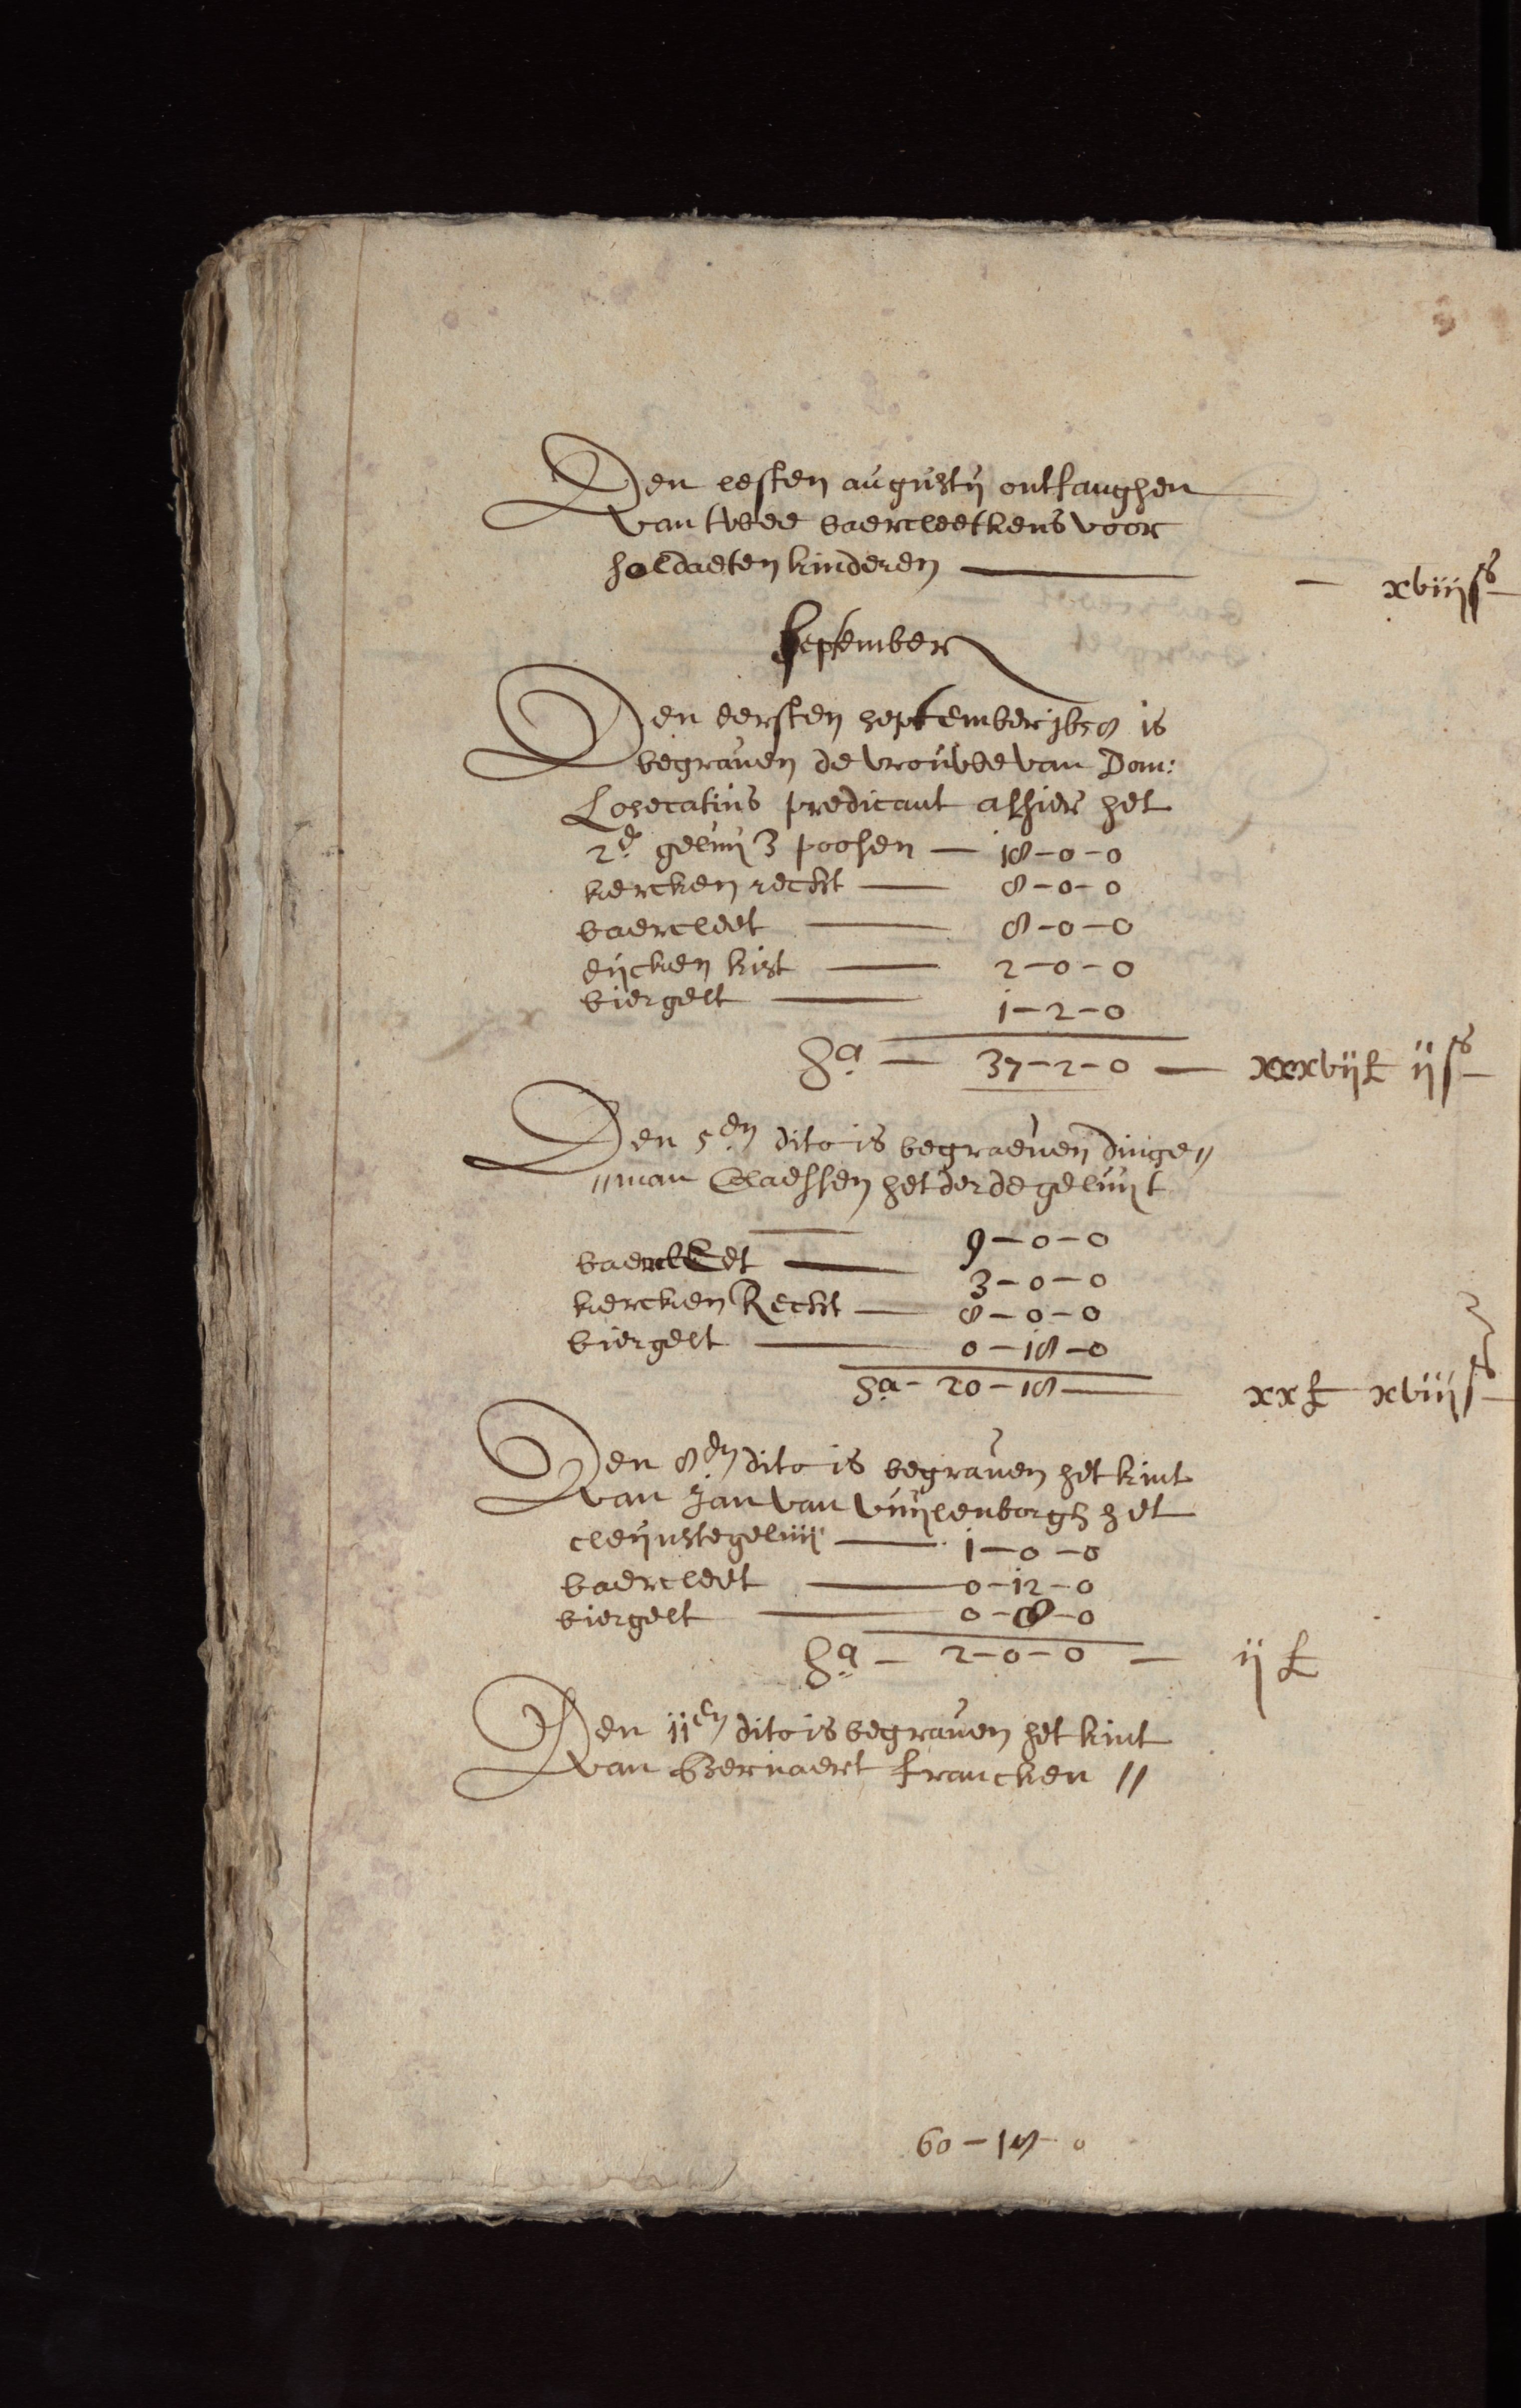 Den lesten augusty ontfanghen
van twee baercleetkens voor
soldaeten kinderen — — xviij s
September
Den eersten september 1658 is
begraven de vrouwe van Dom:
Losecatius predicant alhier het
2e geluij 3 poosen — 18-0-0
kercken recht — 8-0-0
baercleet — 8-0-0
eijcken kist — 2-0-0
biergelt — 1-2-0
Sa — 37-2-0 — xxxvij £ ij s
Den 5en dito is begraeven dinge〃
〃man Claessen het derde geluijt
— 9-0-0
baercleet — 3-0-0
kercken Recht — 8-0-0
biergelt — 0-18-0
Sa - 20-18 — xx £ xviij s
Den 8en dito is begraven het kint
van Jan van vuijlenborgh het
cleijnste geluij — 1-0-0
baercleet — 0-12-0
biergelt — 0-8-0
Sa — 2-0-0 — ij £
Den 11en dito is begraven het kint
van Bernaert francken 〃
60-18-0